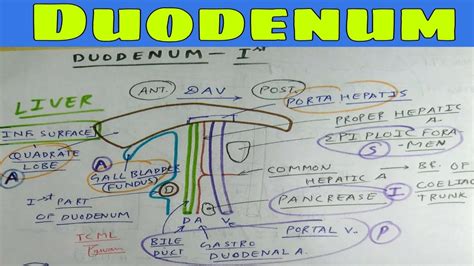 DUODENUM
DUODENUM - Ist
ANT. DAV POST.
PORTA HEPATIS
LIVER
INF. SURFACE
PROPER HEPATIC
A.
QUADRATE
LOBE
EPIPLOIC FORA
- MEN
S
A
A
GALL BLADDER
(FUNDUS)
D
COMMON
HEPATIC A.
BR. OF
COELIAC
TRUNK
Ist PART
OF DUODENUM
PANCREASE
I
D A V
PORTAL V.
P
TCML
BILE
DUCT
GASTRO
DUODENAL A.